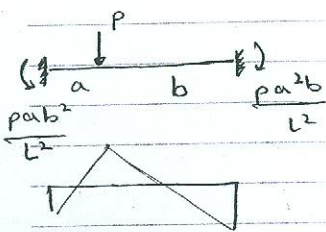 P
a b
Pab²/L²
Pa²b/L²